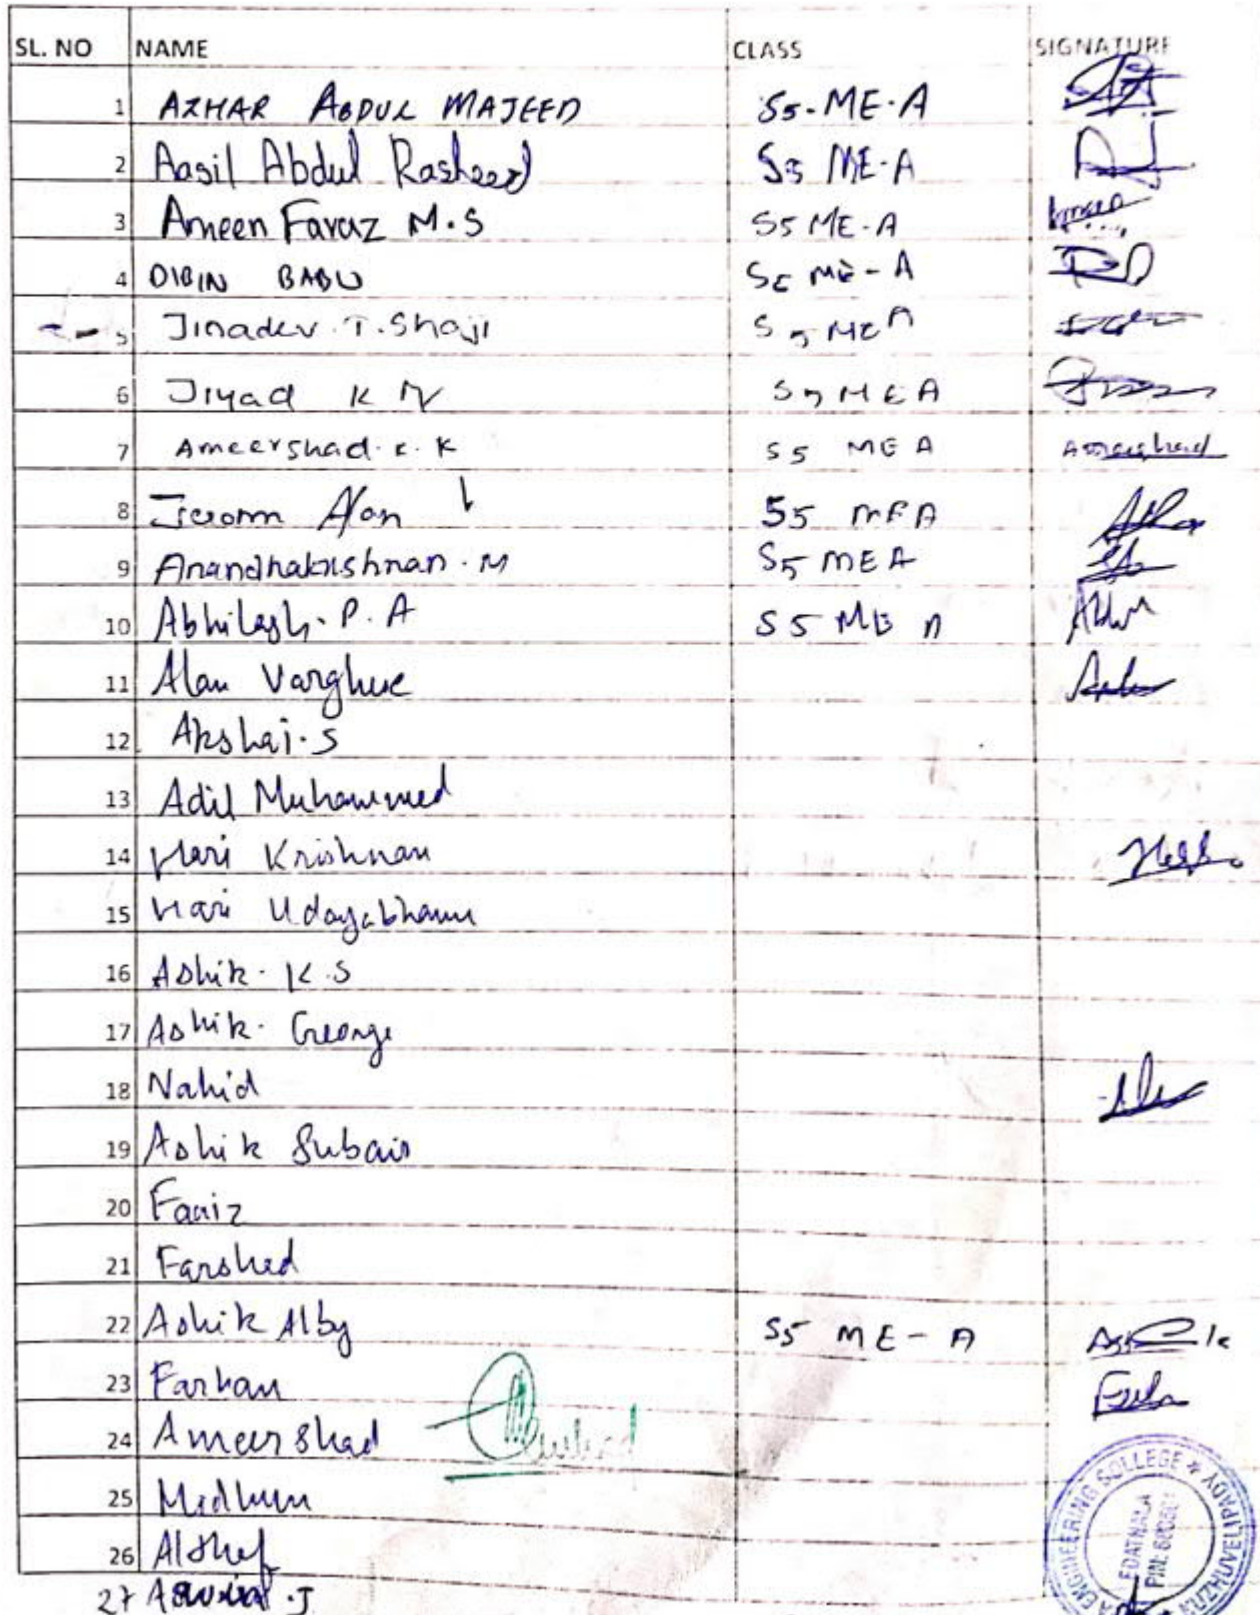 SL. NO NAME CLASS SIGNATURE
1 AZHAR ABDUL MAJEED S5-ME-A
2 Aasil Abdul Rasheed S5 ME-A
3 Ameen Faraz M.S S5 ME-A
4 DIBIN BABU S5 ME-A
5 Jinadev.T.Shaji S5 MEA
6 Jiyad K N S5 MEA
7 Ameershad.K.K S5 MEA
8 Alan S5 MEA
9 Anandhakrishnan.M S5 MEA
10 Abhilash.P.A S5 ME A
11 Alan Varghese
12 Akshai.S
13 Adil Muhammed
14 Hari Krishnan
15 Hari Udayabhanu
16 Ashik.K.S
17 Ashik.George
18 Nahid
19 Ashik Subair
20 Faaiz
21 Farshed
22 Ashik Alby S5 ME-A
23 Farhan
24 Ameershad
25 Midhun
26
27
ENGINEERING COLLEGE
EDATHALA
KUZHUVELIPADY